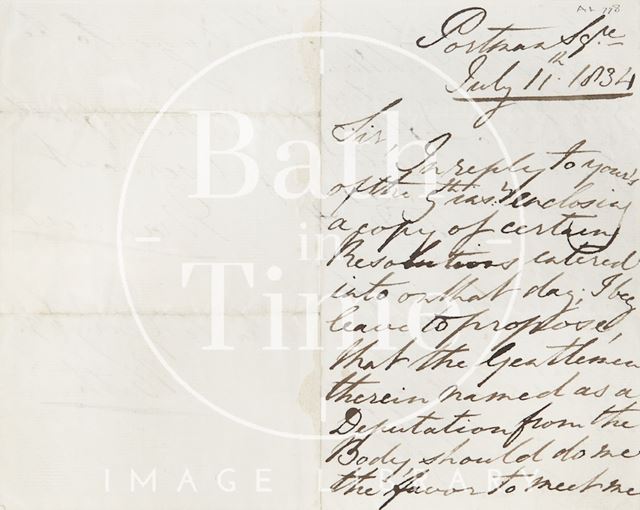 Portman Sqre
July 11th 1834
Sir,
In reply to yours
of the 9th inst. enclosing
a copy of certain
Resolutions entered
into on that day; I beg
leave to propose,
that the Gentlemen
therein named as a
Deputation from the
Body, should do me
the favor to meet me
Bath
in
Time
IMAGE LIBRARY